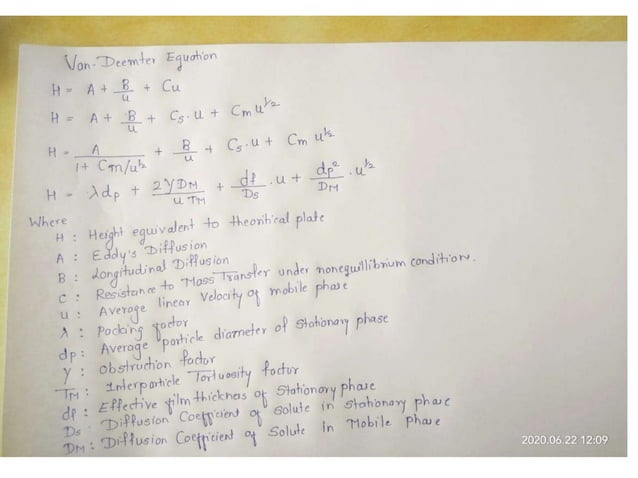 Van-Deemter Equation
H = A + B/u + Cu
H = A + B/u + Cs.u + Cm u^1/2
H = A/(1 + Cm/u^1/2) + B/u + Cs.u + Cm u^1/2
H = λdp + 2γDM/u TM + df/Ds .u + dp²/DM .u^1/2
Where
H : Height equivalent to theoritical plate
A : Eddy's Diffusion
B : Longitudinal Diffusion
C : Resistance to Mass Transfer under nonequillibrium condition.
u : Average linear Velocity of mobile phase
λ : Packing factor
dp : Average particle diameter of Stationary phase
γ : Obstruction factor
TM : Interparticle Tortuosity factor
df : Effective film thickness of Stationary phase
Ds : Diffusion Coefficient of Solute in Stationary phase
DM : Diffusion Coefficient of Solute In Mobile phase
2020.06.22 12:09